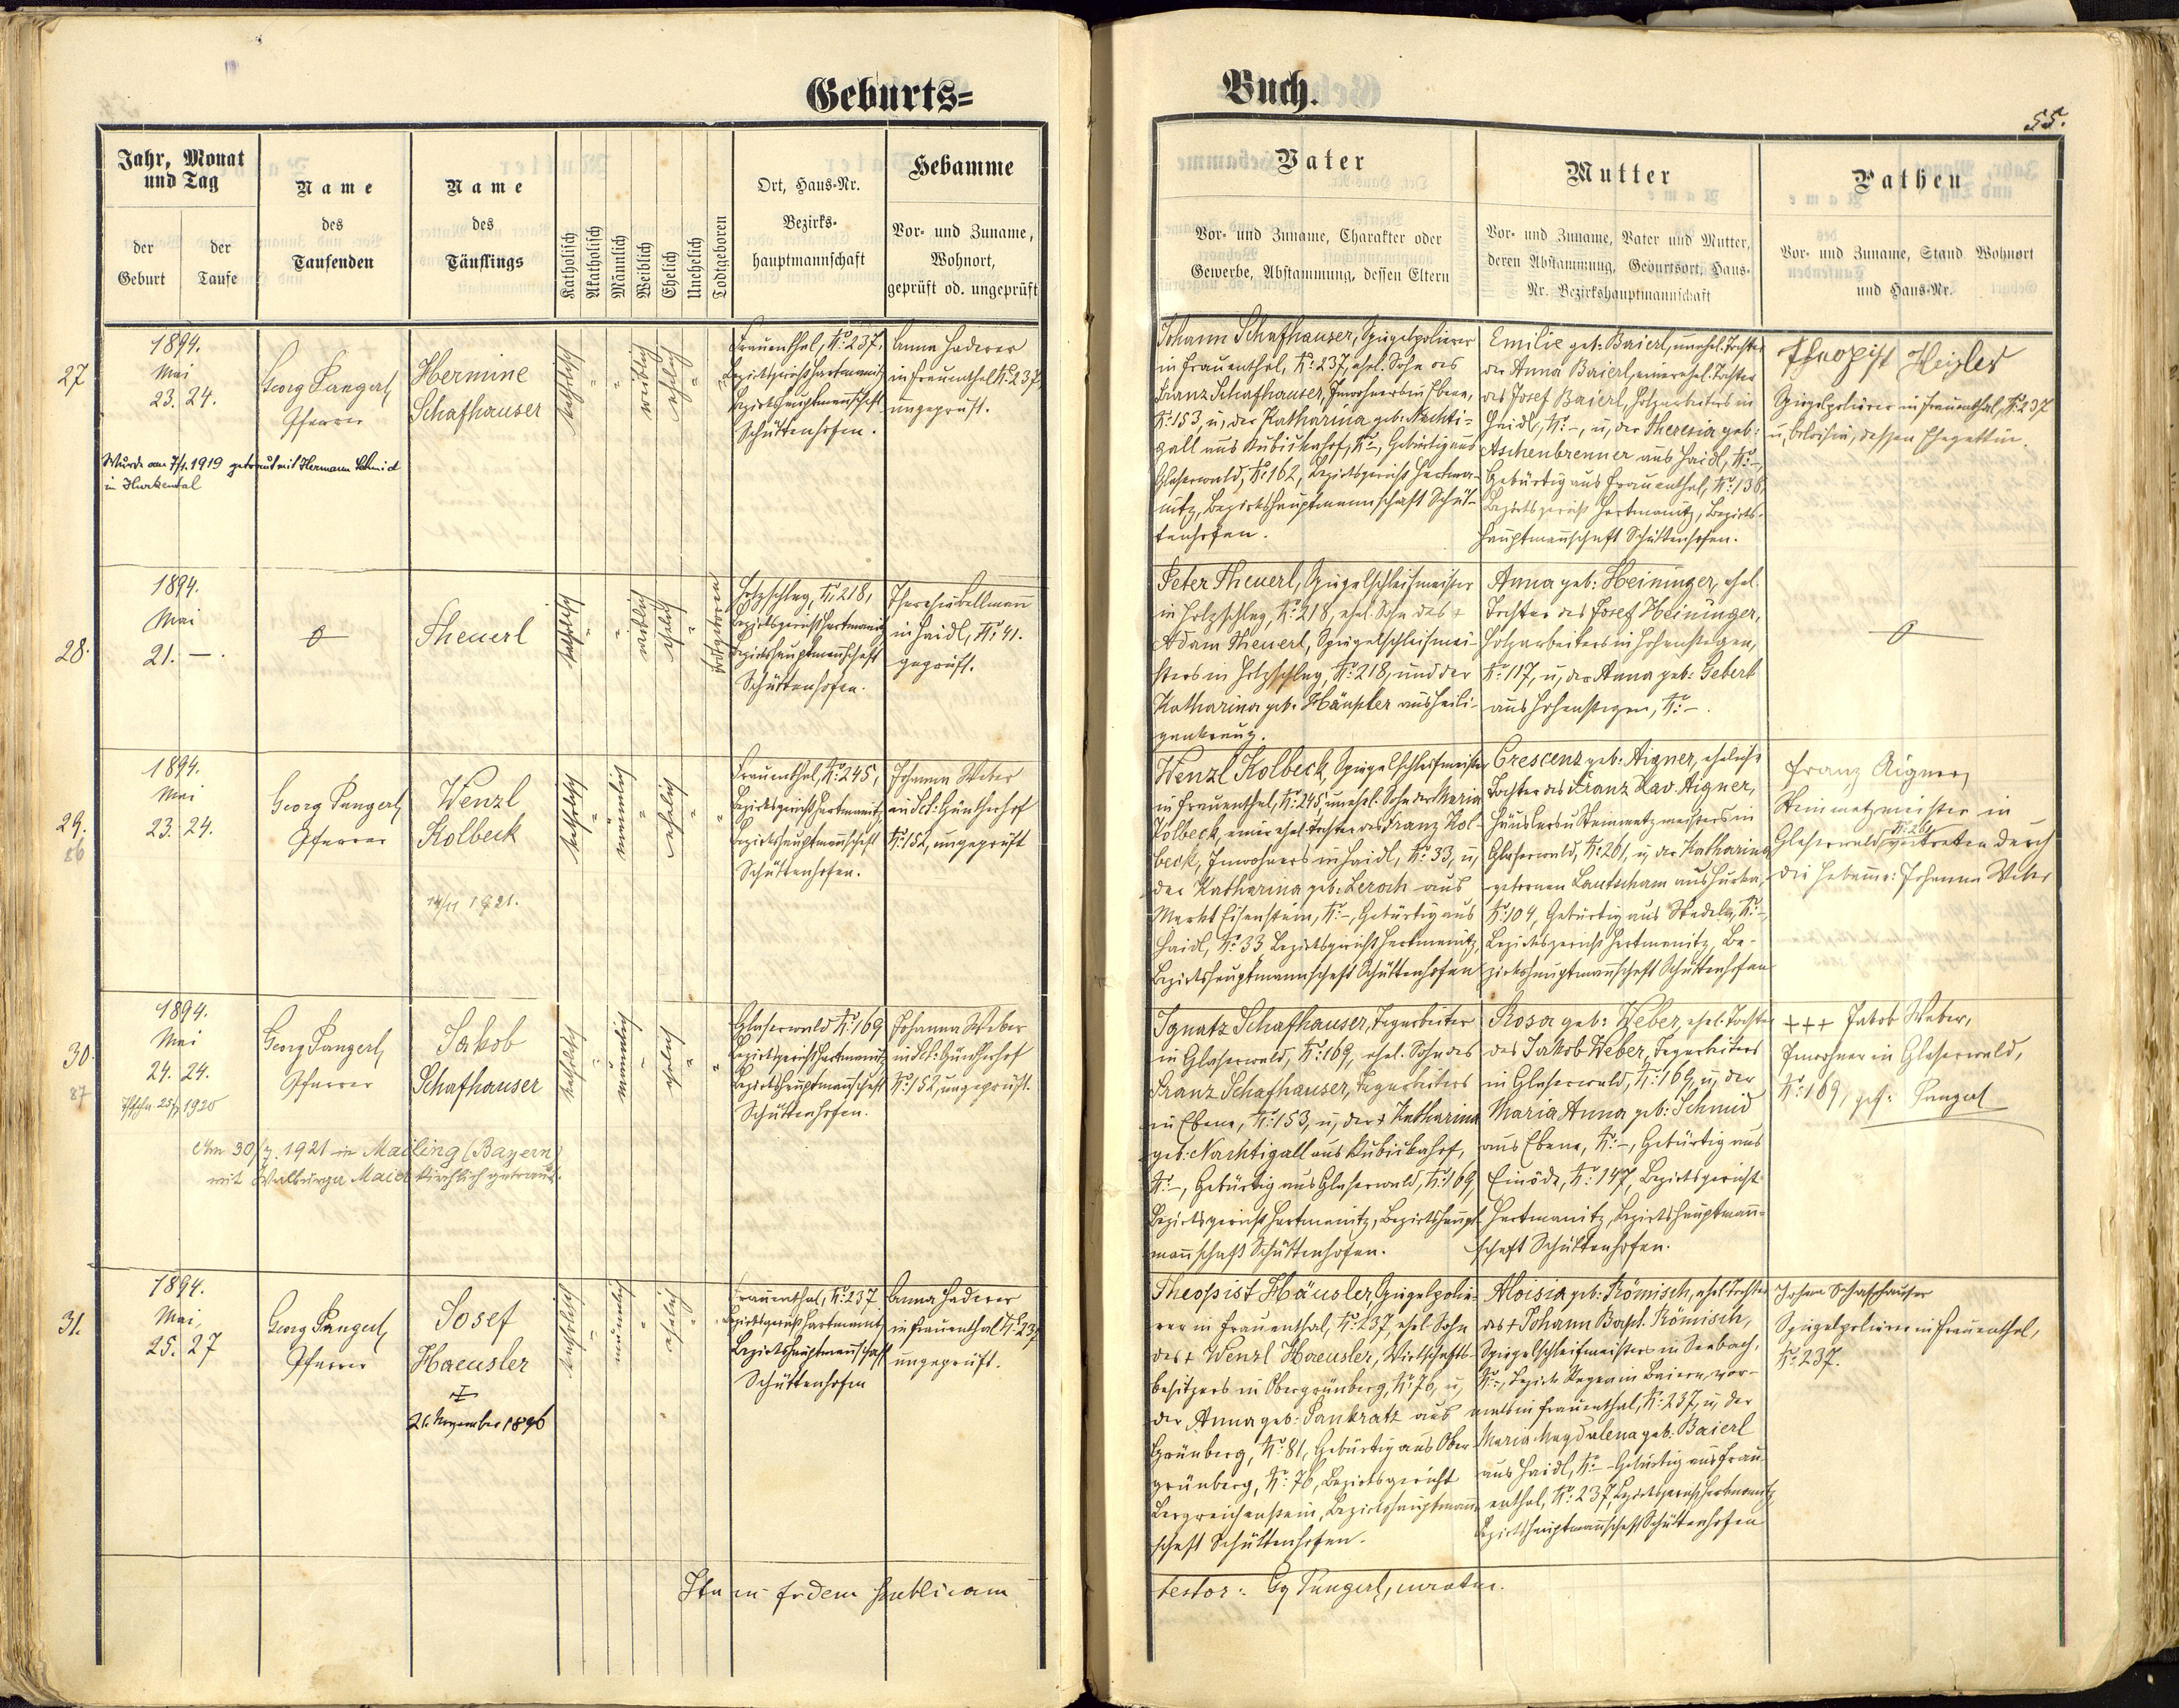 Geburts=
Buch.
55.
Jahr, Monat
und Tag
der
Geburt
der
Taufe
Name
des
Taufenden
Name
des
Täuflings
Katholisch
Akatholisch
Männlich
Weiblich
Ehelich
Unehelich
Todtgeboren
Ort, Haus-Nr.
Bezirks-
hauptmannschaft
Hebamme
Vor- und Zuname,
Wohnort,
geprüft od. ungeprüft
Vater
Vor- und Zuname, Charakter oder
Gewerbe, Abstammung, dessen Eltern
Mutter
Vor- und Zuname, Vater und Mutter,
deren Abstammung, Geburtsort, Haus-
Nr. Bezirkshauptmannschaft
Pathen
Vor- und Zuname, Stand Wohnort
und Haus-Nr.
27
1894.
Mai
23. 24.
Georg Pangerl,
Pfarrer
Hermine
Schafhauser
katholisch
weiblich
ehelich
Frauenthal, No: 237.
Bezirksgericht Hartmanitz
Bezirkshauptmannschaft
Schüttenhofen.
Anna Haderer
in Frauenthal No: 237,
ungeprüft.
Wurde am 7/1. 1919 getraut mit Hermann Schmid
in Hurkental
Johann Schafhauser, Spiegelpolierer
in Frauenthal, No: 237, ehel. Sohn des
Franz Schafhauser, Inwohners in Ebene,
No: 153, u, der Katharina geb: Nachti-
gall aus Kubickahof, No: -, Gebürtig aus
Glaserwald, No: 162, Bezirksgericht Hartma-
nitz, Bezirkshauptmannschaft Schüt-
tenhofen.
Emilie geb: Baierl, unehel. Tochter
der Anna Baierl, einer ehel. Tochter
des Josef Baierl, Holzarbeiters in
Haidl, No: -, u, der Theresia geb:
Aschenbrenner aus Haidl, No: -,
Gebürtig aus Frauenthal, No: 138,
Bezirksgericht Hartmanitz, Bezirks-
hauptmannschaft Schüttenhofen.
Theopist Heisler
Spiegelpolierer in Frauenthal, No: 237
u, Aloisia, dessen Ehegattin.
28.
1894.
Mai
21. — .
Theuerl
katholisch
weiblich
ehelich
todtgeboren
Holzschlag, No: 218,
Bezirksgericht Hartmanitz
Bezirkshauptmannschaft
Schüttenhofen.
Theresia Kellmann
in Haidl, No: 41.
geprüft.
Peter Theuerl, Spiegelschleifmeister
in Holzschlag, No: 218, ehel. Sohn des +
Adam Theuerl, Spiegelschleifmei-
sters in Holzschlag, No: 218, und der
Katharina geb. Häupler aus Heili-
genkreuz.
Anna geb: Heininger, ehel.
Tochter des Josef Heininger,
Holzarbeiters in Hohenstegen,
No: 117, u, der Anna geb: Gebert
aus Hohenstegen, No: -.
29.
86
1894.
Mai
23. 24.
Georg Pangerl,
Pfarrer
Wenzl
Kolbeck
14/11 1921.
katholisch
männlich
ehelich
Frauenthal, No: 245,
Bezirksgericht Hartmanitz,
Bezirkshauptmannschaft
Schüttenhofen.
Johanna Weber
in Sct: Güntherhof
No: 152, ungeprüft
Wenzl Kolbeck, Spiegelschleifmeister
in Frauenthal, No: 245, unehel. Sohn der Maria
Kolbeck, einer ehel. Tochter des Franz Kol-
beck, Inwohners in Haidl, No: 33, u,
der Katharina geb: Lerach aus
Markt Eisenstein, No: -, Gebürtig aus
Haidl, No: 33 Bezirksgericht Hartmanitz,
Bezirkshauptmannschaft Schüttenhofen
Crescenz geb: Aigner, eheliche
Tochter des Franz Xav. Aigner,
Häuslers u Steinmetzmeisters in
Glaserwald, No: 261, u, der Katharina
gebornen Lautscham aus Hurka,
No: 104, Gebürtig aus Stadeln, No: -,
Bezirksgericht Hartmanitz, Be-
zirkshauptmannschaft Schüttenhofen
Franz Aigner,
Steinmetzmeister in
Glaserwald No: 261 vertreten durch
die Hebamme: Johanna Weber
30.
87
1894.
Mai
24. 24.
1920
Georg Pangerl,
Pfarrer
Jakob
Schafhauser
katholisch
männlich
ehelich
Glaserwald No: 169
Bezirksgericht Hartmanitz
Bezirkshauptmannschaft
Schüttenhofen.
Johanna Weber
in Sct: Güntherhof
No: 152, ungeprüft.
Am 30/7. 1921 in Mailing (Bayern)
mit Walburga Maier kirchlich getraut.
Ignatz Schafhauser, Tagarbeiter
in Glaserwald, No: 169, ehel. Sohn des
Franz Schafhauser, Tagarbeiters
in Ebene, No: 153, u, der + Katharina
geb. Nachtigall aus Kubickahof,
No: -, Gebürtig aus Glaserwald, No: 169,
Bezirksgericht Hartmanitz, Bezirkshaupt-
mannschaft Schüttenhofen.
Rosa geb: Weber, ehel. Tochter
des Jakob Weber, Tagarbeiters
in Glaserwald, No: 169, u, der
Maria Anna geb: Schmid
aus Ebene, No: -, Gebürtig aus
Einöde, No: 147, Bezirksgericht
Hartmanitz, Bezirkshauptmann-
schaft Schüttenhofen.
+++ Jakob Weber,
Inwohner in Glaserwald,
No: 169, gef: Pangerl
31.
1894.
Mai,
25. 27
Georg Pangerl,
Pfarrer
Josef
Haeusler
21. November 1896
katholisch
männlich
ehelich
Frauenthal, No: 237
Bezirksgericht Hartmanitz
Bezirkshauptmannschaft
Schüttenhofen
Anna Haderer
in Frauenthal No: 237
ungeprüft.
Theopist Häusler, Spiegelpolie-
rer in Frauenthal, No: 237, ehel. Sohn
des + Wenzl Haeusler, Wirtschafts-
besitzers in Obergrünberg, No: 76, u,
der Anna geb: Pankratz aus
Grünberg, No: 81, Gebürtig aus Ober-
grünberg, No: 76, Bezirksgericht
Bergreichenstein, Bezirkshauptmann-
schaft Schüttenhofen.
Aloisia geb: Römisch, ehel. Tochter
des + Johann Bapt. Römisch,
Spiegelschleifmeisters in Seebach,
No: -, Bezirk Regen in Baiern, vor-
mals in Frauenthal, No: 237, u, der
Maria Magdalena geb. Baierl
aus Haidl, No: - Gebürtig aus Frau-
enthal, No: 237, Bezirksgericht Hartmanitz,
Bezirkshauptmannschaft Schüttenhofen
Johann Schafhauser
Spiegelpolierer in Frauenthal,
No: 237.
Ita in fidem publicam
testor: Gg Pangerl, curatus.